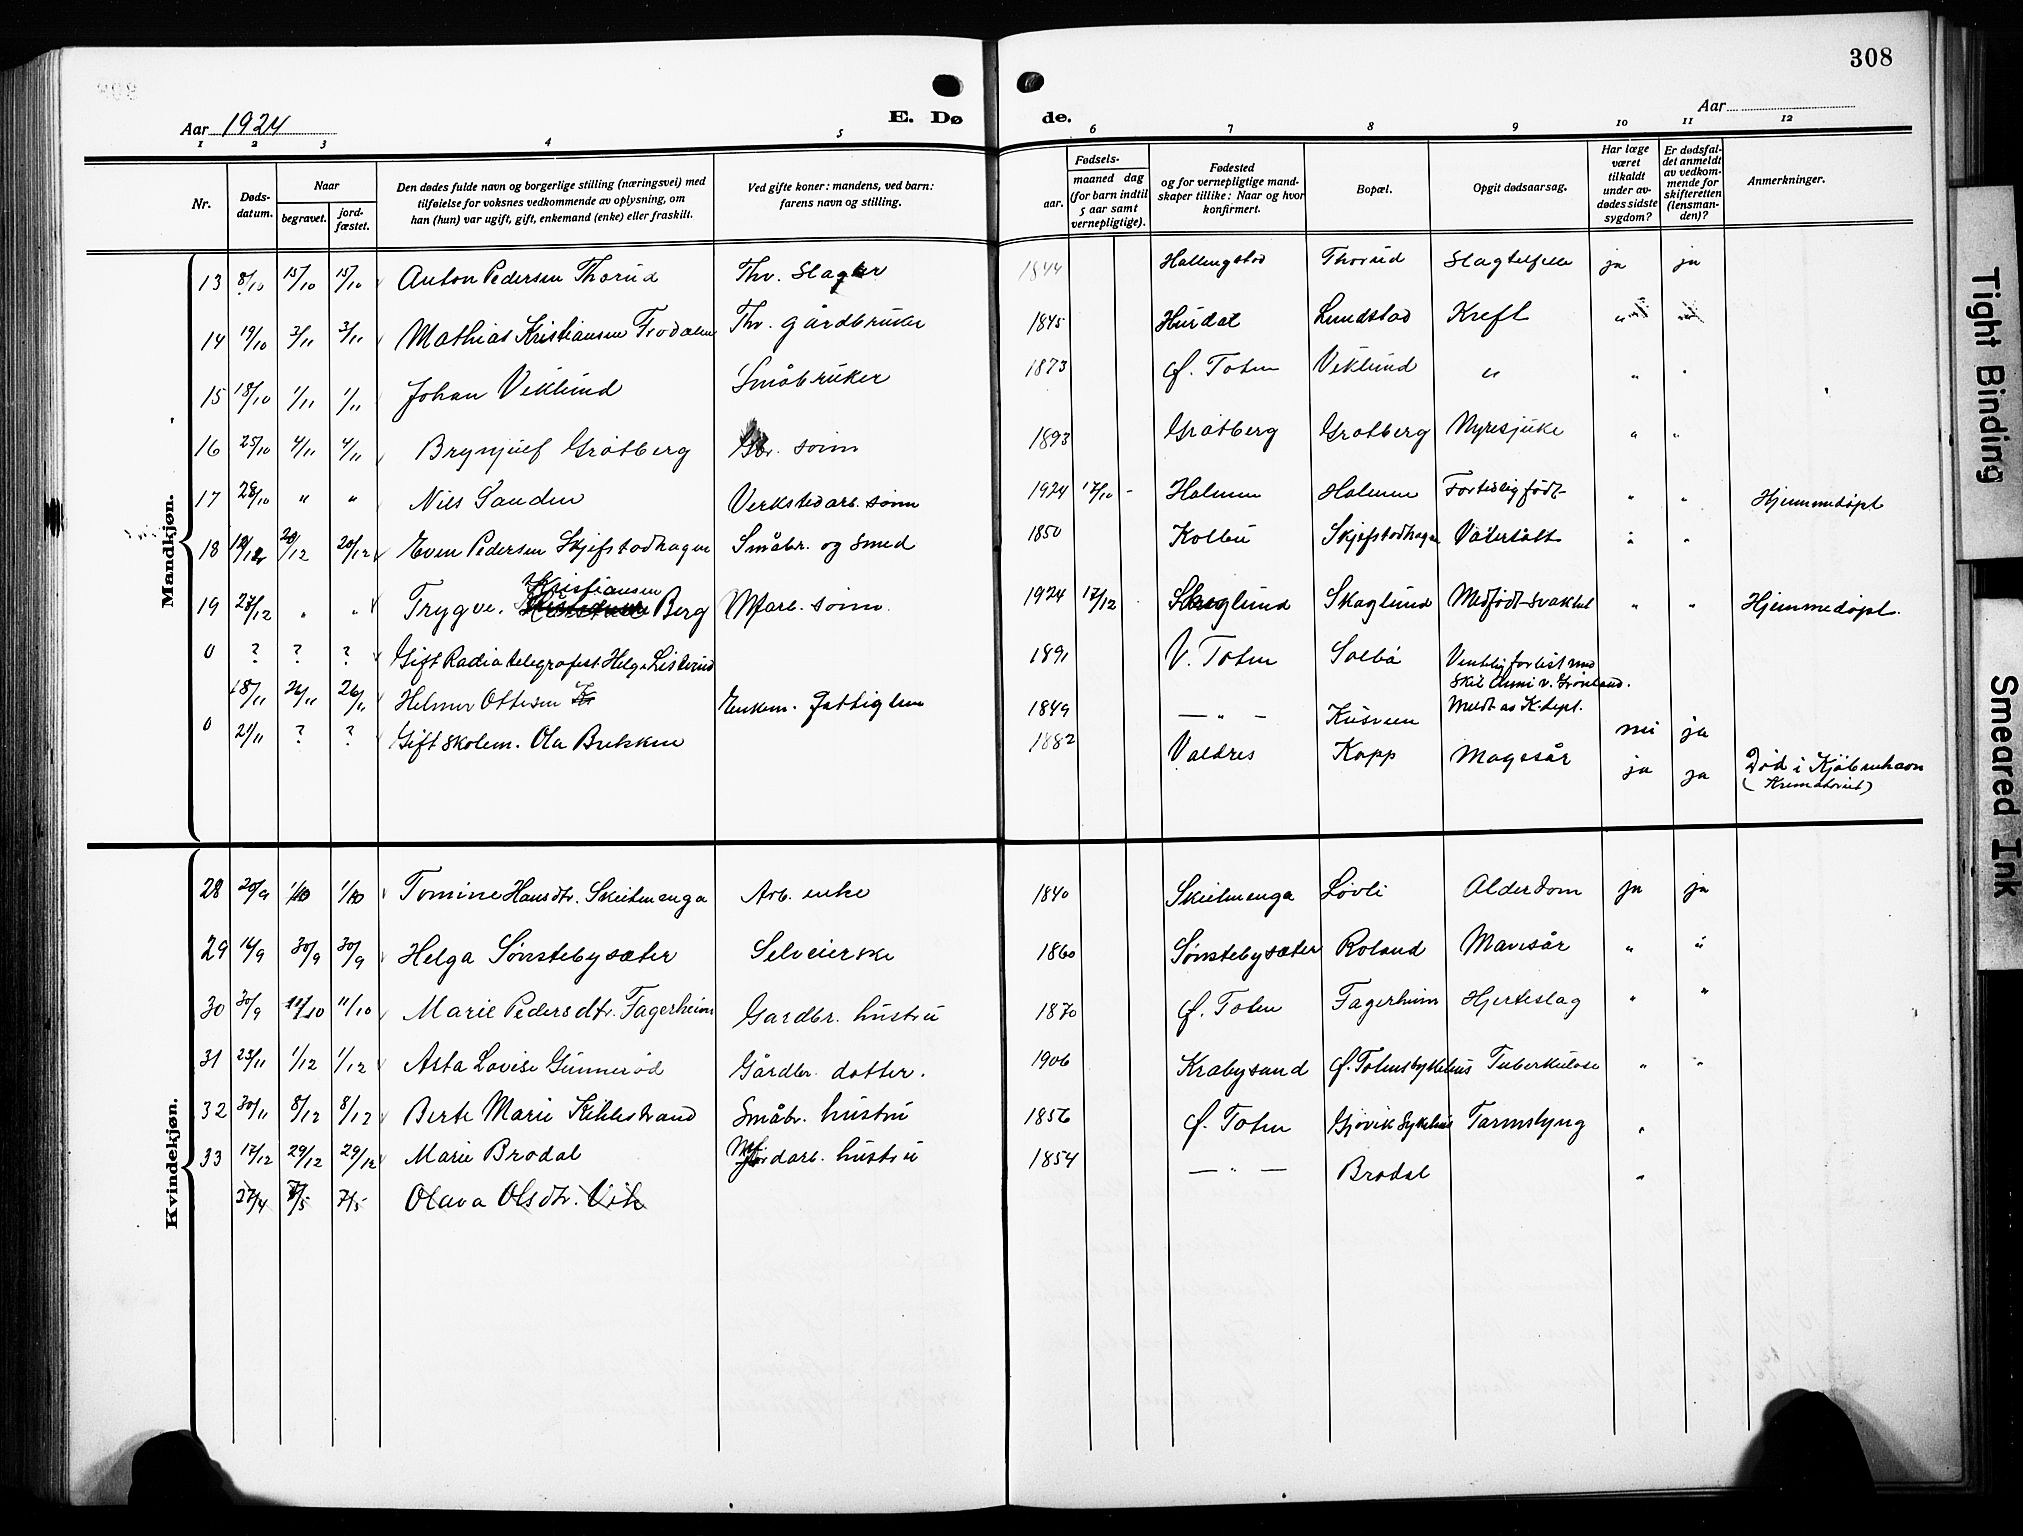 308
Aar 1924
E. Dø de.
Aar
1 2 3 4 5 6 7 8 9 10 11 12
Nr.
Døds-
datum.
Naar
begravet.
jord-
fæstet.
Den dødes fulde navn og borgerlige stilling (næringsvei) med
tilføielse for voksnes vedkommende av oplysning, om
han (hun) var ugift, gift, enkemand (enke) eller fraskilt.
Ved gifte koner: mandens, ved barn:
farens navn og stilling.
Fødsels-
aar.
maaned dag
(for barn indtil
5 aar samt
vernepligtige).
Fødested
og for vernepligtige mand-
skaper tillike: Naar og hvor
konfirmert.
Bopæl.
Opgit dødsaarsag.
Har læge
været
tilkaldt
under av-
dødes sidste
sygdom?
Er dødsfal-
det anmeldt
av vedkom-
mende for
skifteretten
(lensman-
den)?
Anmerkninger.
Mandkjøn.
13 8/10 15/10 15/10 Anton Pedersen Thorud Thv. Slagter 1844 Hallingstad Thorud Slagtilfelle ja ja
14 19/10 3/11 3/11 Mathias Kristiansen Frodalen Thv. gårdbruker 1845 Hurdal Lundstad Kreft " "
15 18/10 1/11 1/11 Johan Viklund Småbruker 1873 Ø. Toten Viklund " " "
16 25/10 4/11 4/11 Brynjulf Gråtberg Gbr. sønn 1893 Gråtberg Gråtberg Nyresjuke " "
17 28/10 " " Nils Sanden Verkstedarb. sønn 1924 17/10 Holmen Holmen Fortidlig født " " Hjemmedøpt
18 12/12 20/12 20/12 Even Pedersen Skjefstadhagen Småbr. og smed 1850 Kolbu Skjefstadhagen Vatersått " "
19 27/12 " " Trygve Kristiansen Berg Mfarb. sønn. 1924 17/12 Skaglund Skaglund Medfødt svakhet " " Hjemmedøpt.
0 ? ? ? Gift Radiotelegrafist Helge Listerud 1891 V. Toten Solbø Ventelig forlist med
Skib Anni v. Grønland.
Meldt av K. dept.
18/11 26/11 26/11 Helmer Ottesen Enkem. Fattiglem 1849 — " — Kusveen nei ja
0 21/11 ? ? Gift skolem. Ola Brekken 1882 Valdres Kapp Magesår ja ja Død i Kjøbenhavn
(Krematoriet)
Kvindekjøn.
28 20/9 1/10 1/10 Tomine Hansdtr. Skielmenga Arb. enke 1840 Skielmenga Løvli Alderdom ja ja
29 16/9 30/9 30/9 Helga Sønstebysæter Selveierske 1860 Sønstebysæter Roland Mavesår " "
30 30/9 11/10 11/10 Marie Pedersdtr. Fagerheim Gardbr. hustru 1870 Ø. Toten Fagerheim Hjerteslag " "
31 23/11 1/12 1/12 Asta Lovise Gunnerød Gårdbr. dotter. 1906 Krabysand Ø. Totensykehus Tuberkulose " "
32 30/11 8/12 8/12 Berte Marie Kiklestrand Småbr. hustru 1856 Ø. Toten Gjøvik Sykehus Tarmslyng "
33 17/12 29/12 29/12 Marie Brodal Jordarb. hustru 1854 — " — Brodal "
27/4 7/5 7/5 Olava Olsdtr. Vik
Tight Binding
Smeared Ink